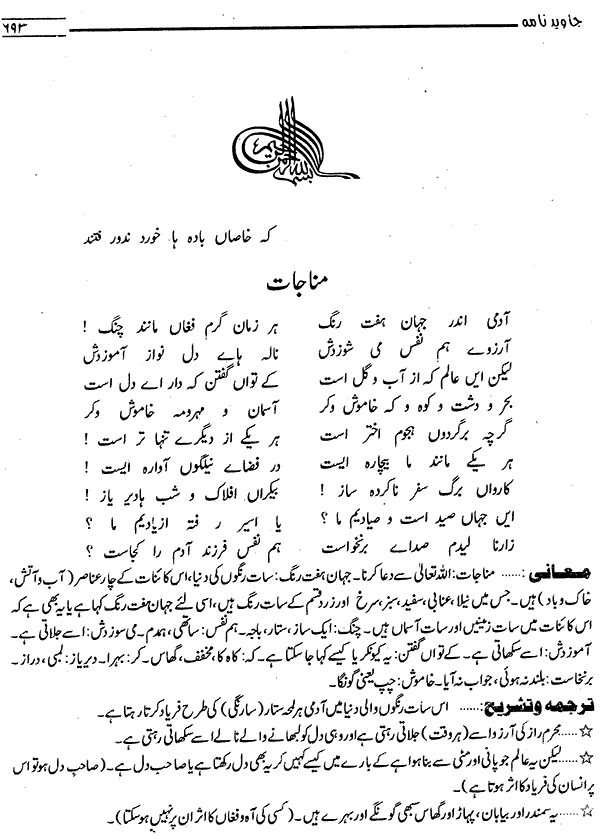 جاوید نامہ ۶۹۳
بسم اللہ الرحمن الرحیم
کہ خاصاں بادہ ہا خورد ندور فتند
مناجات
آدمی اندر جہان ہفت رنگ ہر زماں گرم فغاں مانند چنگ !
آرزوے ہم نفس می سوزدش نالہ ہاے دل نواز آموزدش
لیکن ایں عالم کہ از آب و گل است کے تواں گفتن کہ دار اے دل است
بحر و دشت و کوہ و کہ خاموش وکر آسمان و مہرومہ خاموش وکر
گرچہ برگردوں ہجوم اختر است ہر یکے از دیگرے تنہا تر است !
ہر یکے مانند ما بیچارہ ایست در فضاے نیلگوں آوارہ ایست !
کارواں برگ سفر ناکردہ ساز ! بیکراں افلاک و شب ہادیر یاز !
ایں جہاں صید است و صیادیم ما ؟ یا اسیر رفتہ ازیادیم ما ؟
زارنا لیدم صداے برنخواست ہم نفس فرزند آدم را کجاست ؟
معانی: ...... مناجات: اللہ تعالیٰ سے دعا کرنا۔ جہان ہفت رنگ: سات رنگوں کی دنیا، اس کائنات کے چار عناصر (آب و آتش،
خاک و باد) ہیں۔ جس میں نیلا، عنابی، سفید، سبز، سرخ اور زرد قسم کے سات رنگ ہیں، اسی لئے جہان ہفت رنگ کہا ہے یا یہ بھی ہے کہ
اس کائنات میں سات زمینیں اور سات آسماں ہیں۔ چنگ: ایک ساز، ستار، باجہ۔ ہم نفس: ساتھی، ہمدم۔ می سوزدش: اسے جلاتی ہے۔
آموزدش: اسے سکھاتی ہے۔ کے تواں گفتن: یہ کیونکر یا کیسے کہا جا سکتا ہے۔ کہ: کاہ کا، مخفف، گھاس۔ کر: بہرا۔ دیریاز: لمبی، دراز۔
برنخاست: بلند نہ ہوئی، جواب نہ آیا۔ خاموش: چپ یعنی گونگا۔
ترجمہ و تشریح: ...... اس سات رنگوں والی دنیا میں آدمی ہر لمحہ ستار (سارنگی) کی طرح فریاد کرتا رہتا ہے۔
☆..... محرم راز کی آرزو اسے (ہر وقت) جلاتی رہتی ہے اور وہی دل کو لبھانے والے نالے اسے سکھاتی رہتی ہے۔
☆..... لیکن یہ عالم جو پانی اور مٹی سے بنا ہوا ہے کے بارے میں کیسے کہیں کہ یہ بھی دل رکھتا ہے یا صاحب دل ہے۔ (صاحب دل ہو تو اس
پر انسان کی فریاد کا اثر ہوتا ہے)۔
☆..... یہ سمندر اور بیابان، پہاڑ اور گھاس سبھی گونگے اور بہرے ہیں۔ (کسی کی آہ و فغاں کا اثر ان پر نہیں ہو سکتا)۔